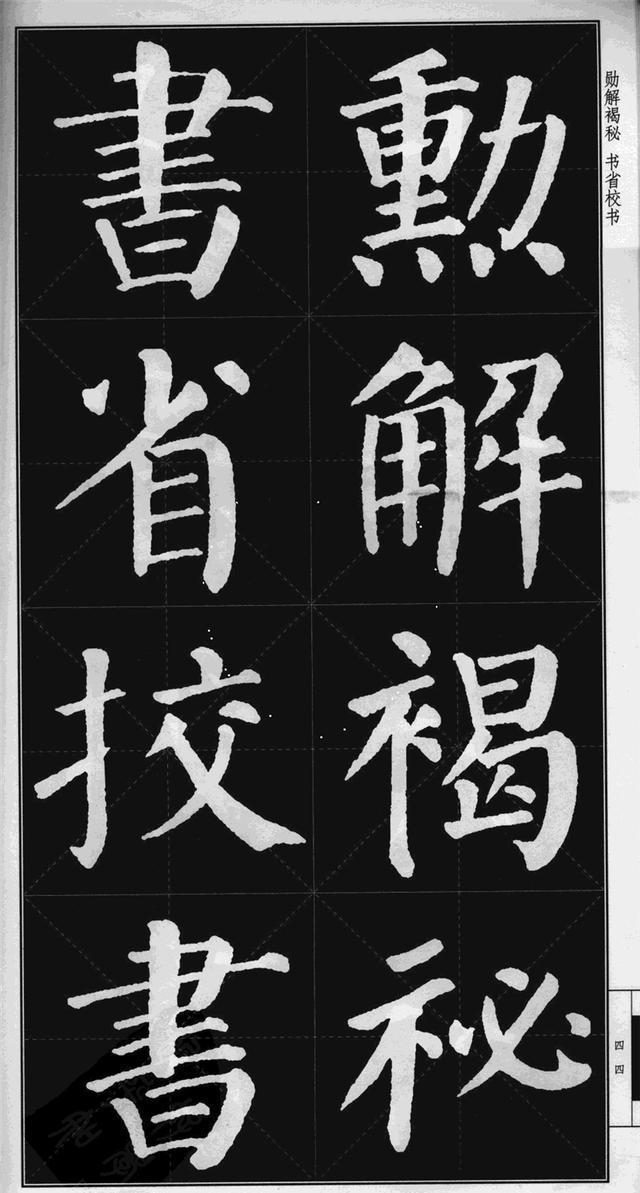 勲解褐祕
書省挍書
勋解褐秘 书省校书
四四